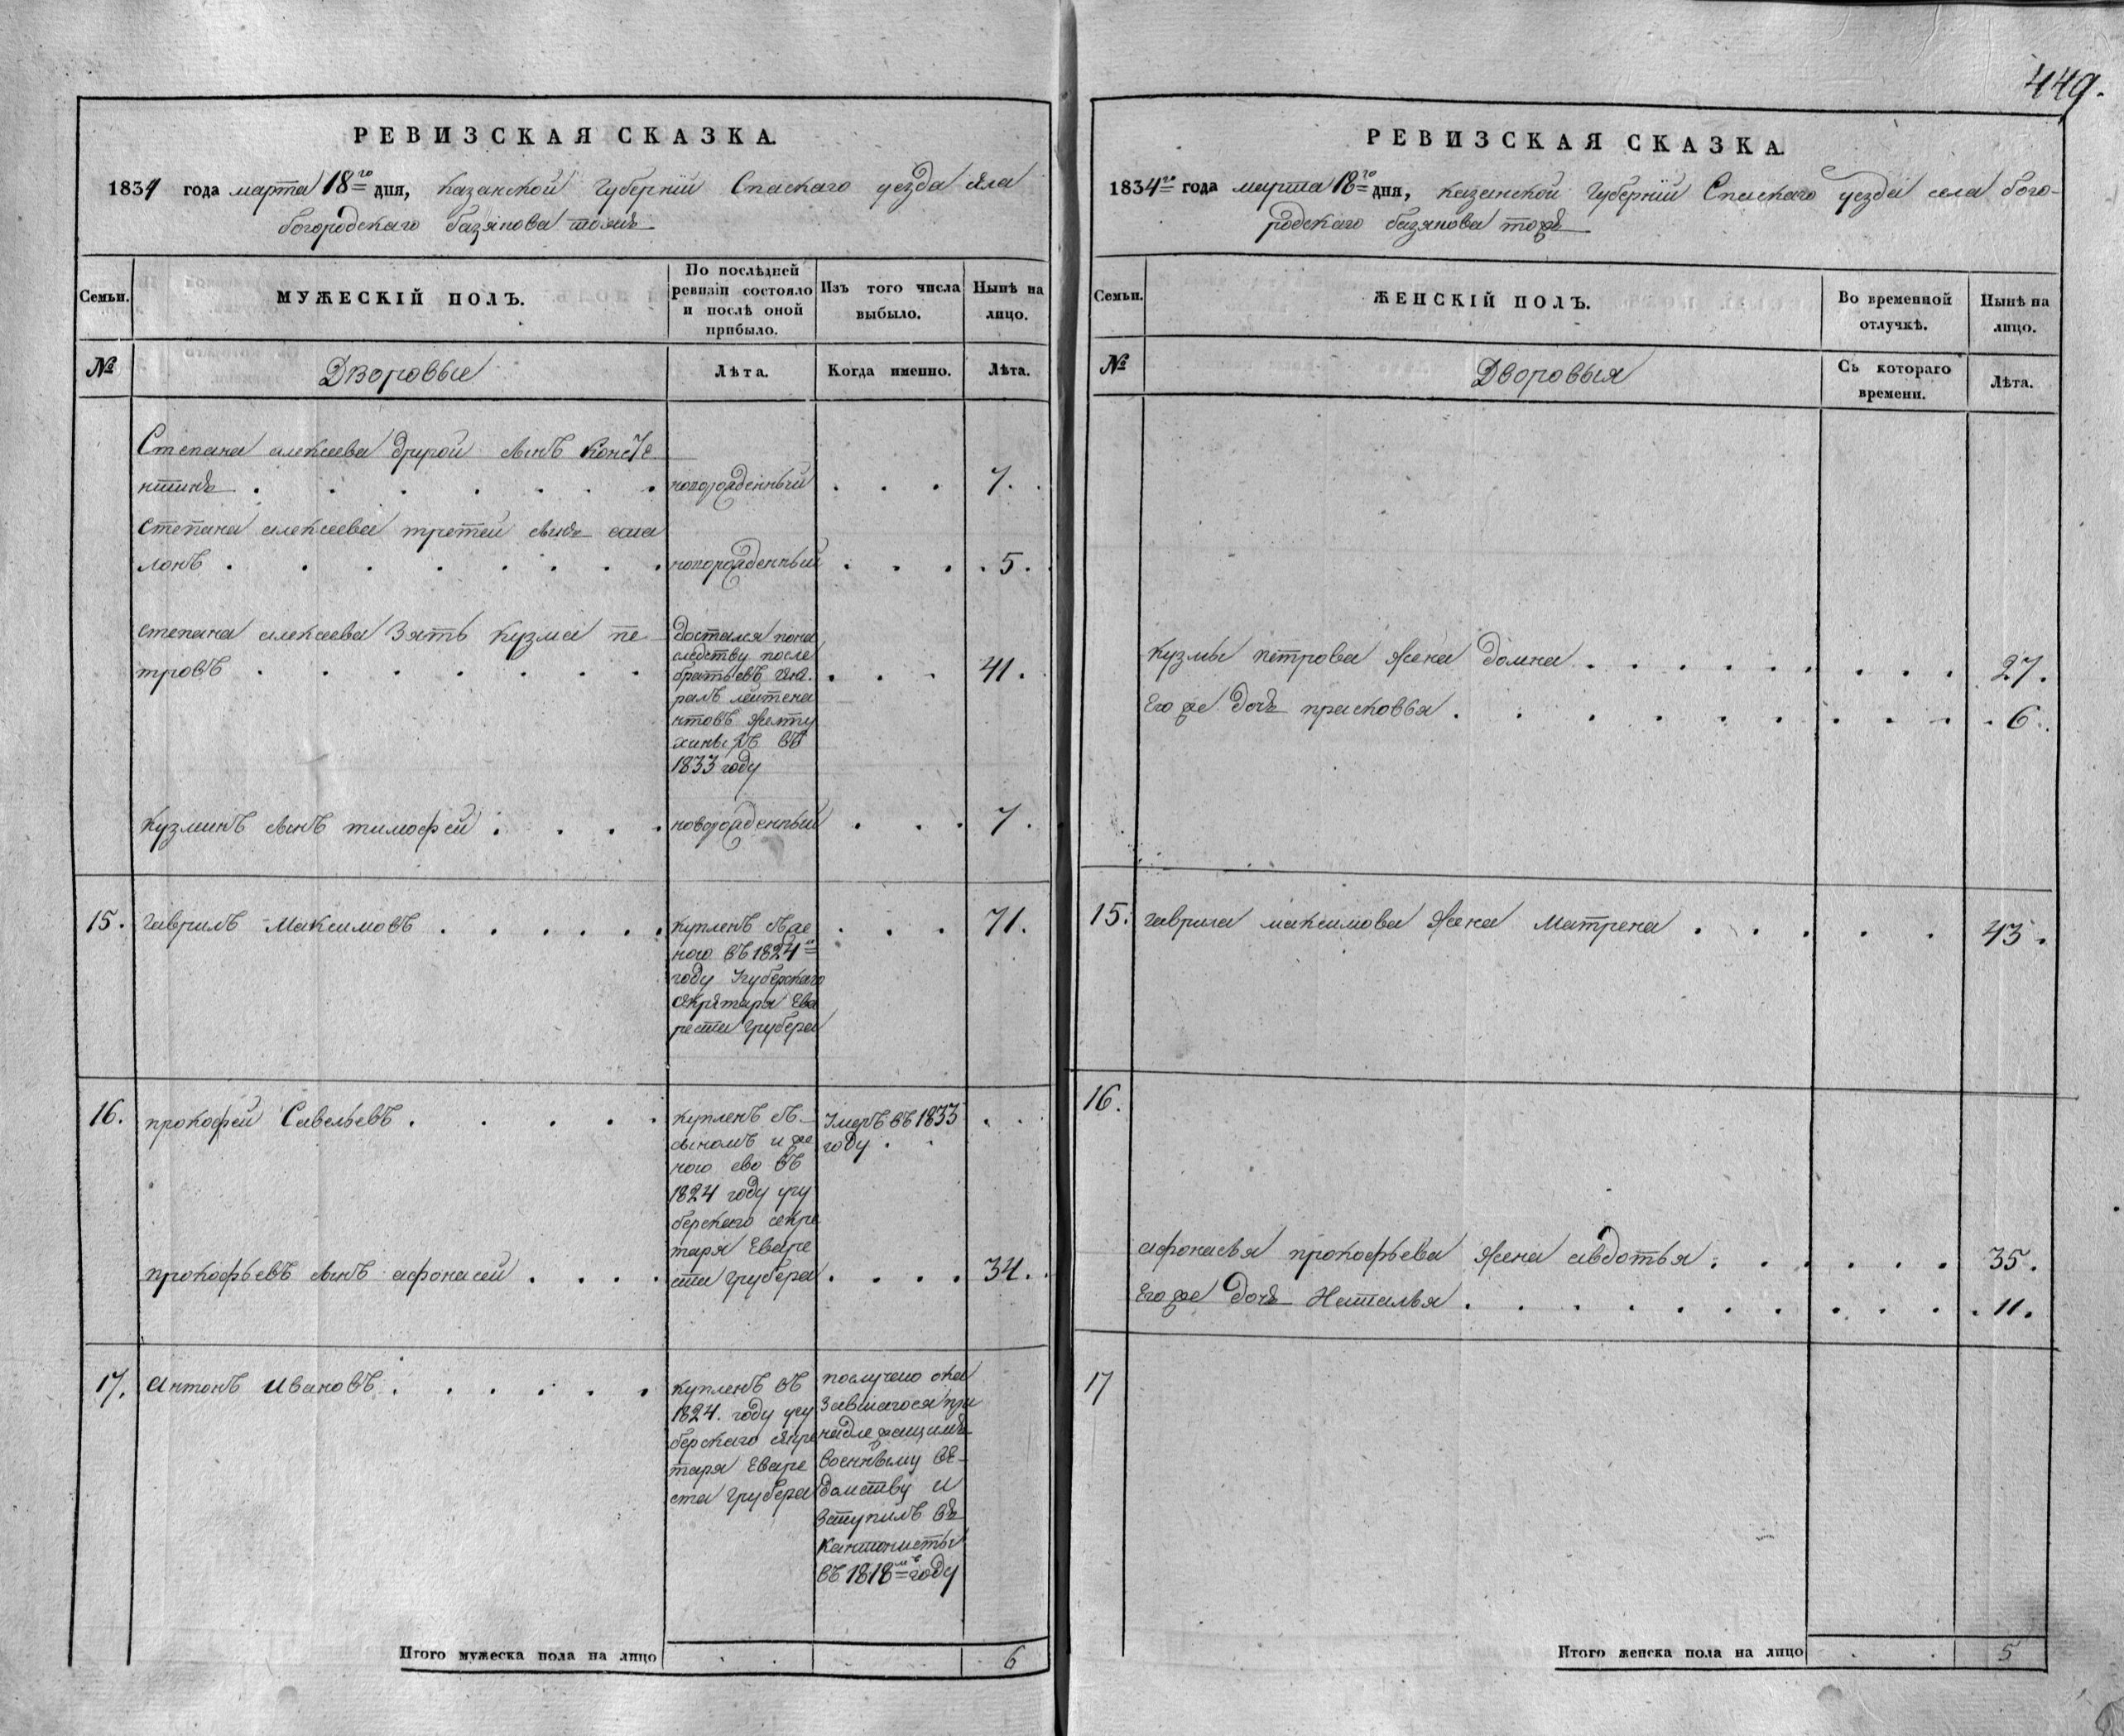 449.
РЕВИЗСКАЯ СКАЗКА.
1834 года марта 18го дня, Казанской Губернїи Спаскаго уезда села
богородскаго базяково тожъ
Семьи.
МУЖЕСКІЙ ПОЛЪ.
По послѣдней
ревизіи состояло
и послѣ оной
прибыло.
Изъ того числа
выбыло.
Нынѣ на
лицо.
№
Дворовые
Лѣта.
Когда именно.
Лѣта.
Степана алексеева другой сынъ Конста
нтинъ . . . . . . . новорожденный . . . 7.
степана алексеева третей сынъ
. . . . . . . . новорожденный . . . 5.
степана алексеева зять кузма пе
тровъ . . . . . . . 41.
достался пона
следству после
братьевъ гене
ралъ лейтена
нтовъ желту
хиныхъ въ
1833 году
Кузминъ сынъ тимофей . . . . новорожденный . . . 7.
15. гаврилъ Максимовъ . . . . . . 71.
купленъ съ же
ною въ 1824м
году Угуберскаго
секретаря Ева
реста грубера
16. прокофей Савельевъ . . . . .
купленъ съ
сыномъ и же
ною ево въ
1824 году угу
берскаго секре
таря Еваре
ста грубера
Умеръ въ 1833
году . .
прокофьевъ сынъ афонасей . . . . 34.
17. Антонъ Ивановъ . . . . . .
купленъ въ
1824. году угу
берскаго секре
таря Еваре
ста грубера
послучаю ока
завшагося при
надлежащимъ
военному ве-
домству и
вступилъ въ
кантонисты
въ 1818мъ году
Итого мужеска пола на лицо . . 6
РЕВИЗСКАЯ СКАЗКА.
1834го года марта 18го дня, Казанской Губернїи Спаскаго уезда села бого-
родскаго базяково тожъ
Семьи.
ЖЕНСКІЙ ПОЛЪ.
Во временной
отлучкѣ.
Нынѣ на
лицо.
№
Дворовыя
Съ котораго
времени.
Лѣта.
Кузмы петрова жена домна . . . . . . . . . 27.
Его же дочь прасковья . . . . . . . . . . 6.
15. гаврила максимова жена Матрена . . . . . 43.
16.
афонасья прокофьева жена авдотья . . . . . . 35.
Его же дочь Наталья . . . . . . . . . . 11.
17
Итого женска пола на лицо . . 5